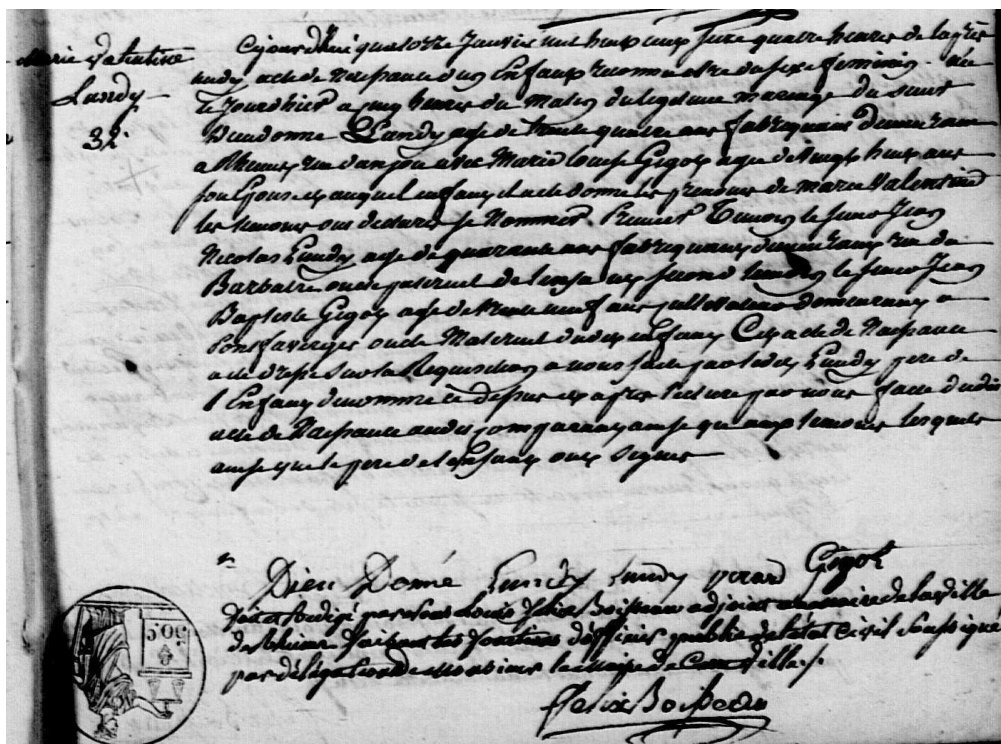 Marie Valentine
Lundy
32.
Cejourd'hui quatorze Janvier mil huit cent seize quatre heures de lapres
midy acte de Naissance d'un Enfant reconnu etre du sexe feminin. née
le Jourdhier a cinq heures du matin du legitime mariage du sieur
Dieudonne Lundy age de trente quatre ans fabriquant demeurant
a Rheims rue danjou avec Marie louise Gigot age de vingt huit ans
son Epouse auquel enfant il a ete donné les prenoms de marie Valentine
les temoins ont declaré se Nommer Premier Temoin le sieur Jean
Nicolas Lundy age de quarante ans fabriquant demeurant rue du
Barbatre oncle paternel de lenfant second temoin le sieur Jean
Baptiste Gigot age de trente neuf ans Cultivateur demeurant a
Pontfaverger oncle Maternel dudit enfant Cet acte de Naissance
a ete dressé sur la Requisition a nous faite par ledit Lundy pere de
l'Enfant denommé ci dessus et apres lecture par nous faite dudit
acte de Naissance audit comparant ainsi quaux temoins lesquels
ainsi que le pere de l'enfant ont signés
Dieu Donné Lundy Lundy Gigot
fait et redigé par nous Louis felix Boisseau adjoint au maire de la ville
de Rheims faisant les fonctions d'officier public de l'état civil soussigné
par délégation de Monsieur le Maire de Cette Ville.
felix Boisseau
50 C.